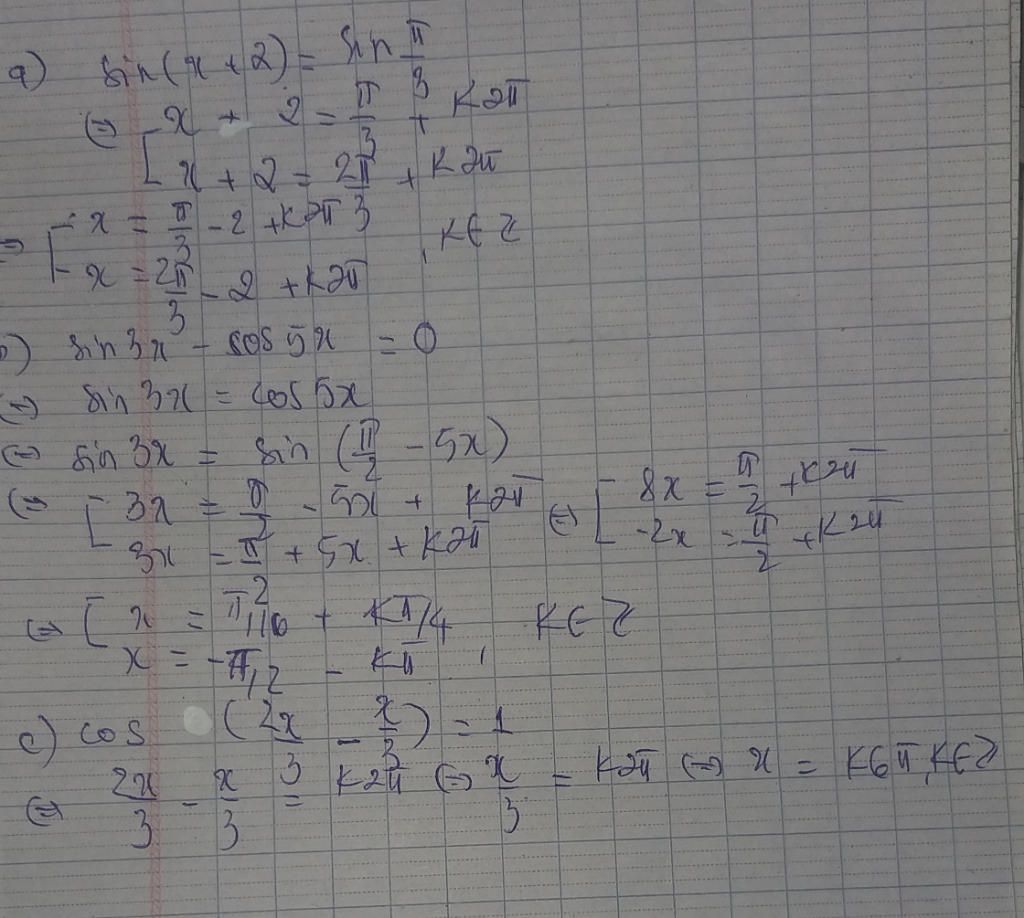 a) sin(x + 2) = sin π/3
⇔ [ x + 2 = π/3 + K2π
x + 2 = 2π/3 + K2π
⇒ [ x = π/3 - 2 + K2π
x = 2π/3 - 2 + K2π , K∈Z
b) sin3x - cos5x = 0
⇔ sin3x = cos5x
⇔ sin3x = sin (π/2 - 5x)
⇔ [ 3x = π/2 - 5x + K2π ⇔ [ 8x = π/2 + K2π
3x = π/2 + 5x + K2π -2x = π/2 + K2π
⇔ [ x = π/16 + Kπ/4 K∈Z
x = -π/2 - Kπ ,
c) cos (2x/3 - x/3) = 1
⇔ 2x/3 - x/3 = K2π ⇔ x/3 = K2π ⇔ x = K6π, K∈Z